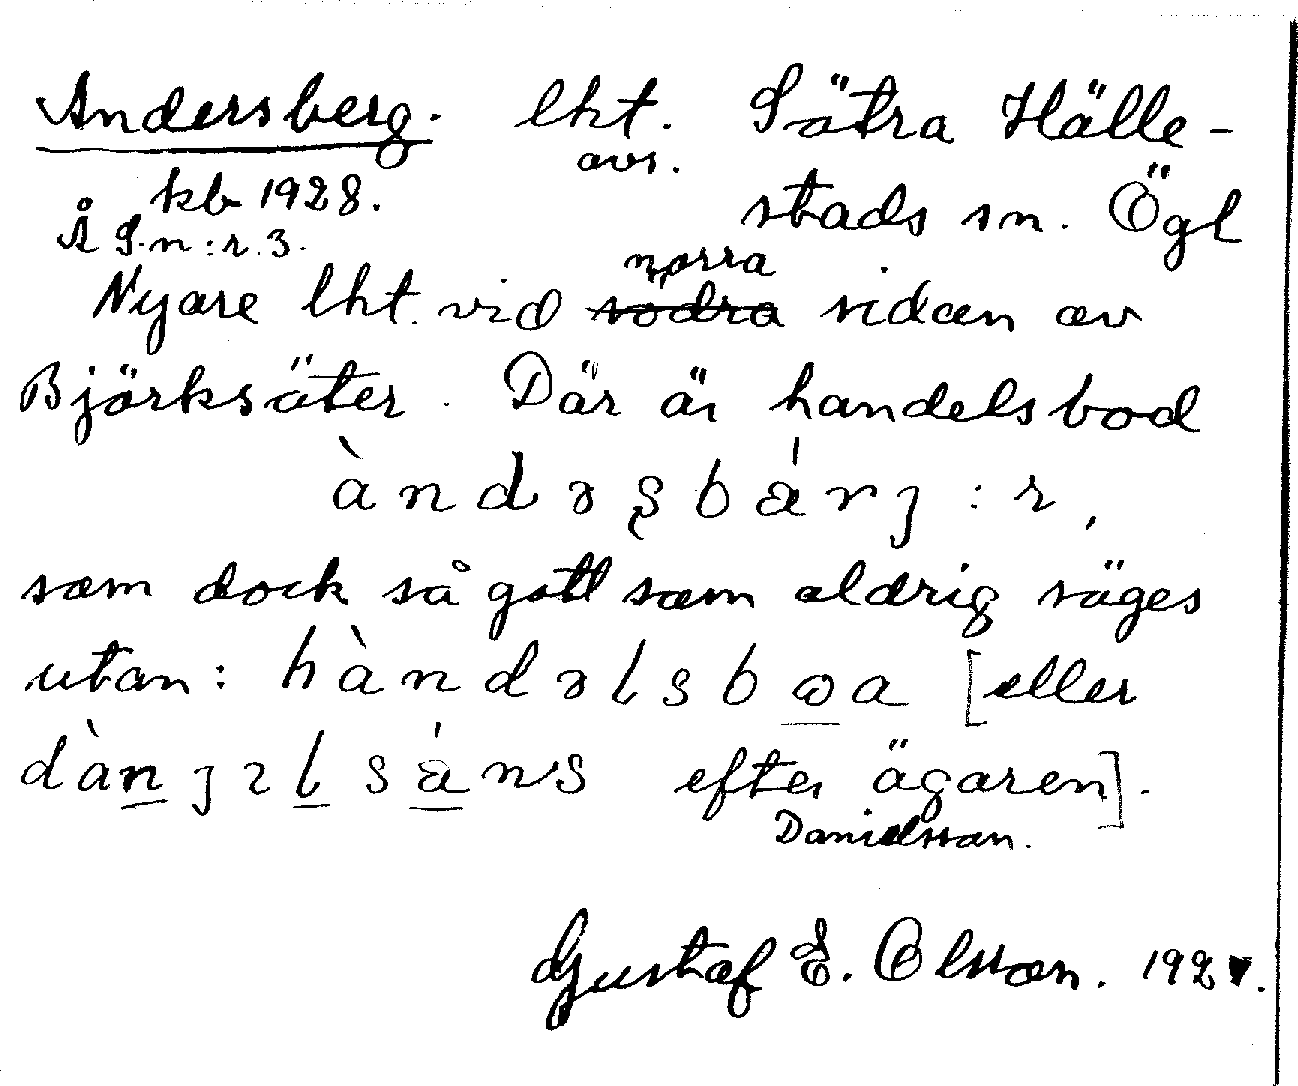 Andersberg. lht. Sätra Hälle-
avs.
kb 1928. stads sn. Ögl
Å S.n:r.3.
norra
Nyare lht. vid södra sidan av
Björksäter. Där är handelsbod
àndəʂbá̤rȷ : r,
som dock så gott som aldrig säges
utan: hàndəlsbωa [eller
dànȷɿlsáns efter ägaren].
Danielsson.
Gustaf E. Olsson. 192